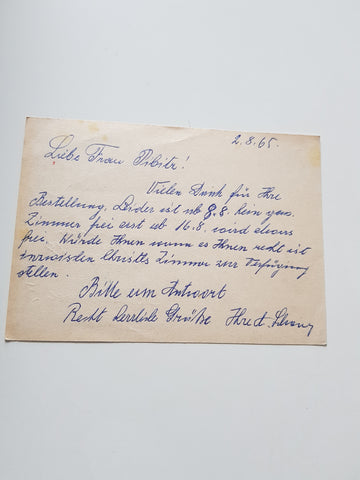 2.8.65.
Liebe Frau
Vielen Dank für Ihre
Bestellung, Leider ist ab 8.8. kein
Zimmer frei erst ab 16.8. wird etwas
frei. Würde Ihnen wenn es Ihnen recht ist
inzwischen Zimmer zur Verfügung
stellen.
Bitte um Antwort
Recht herzliche Grüße Ihre